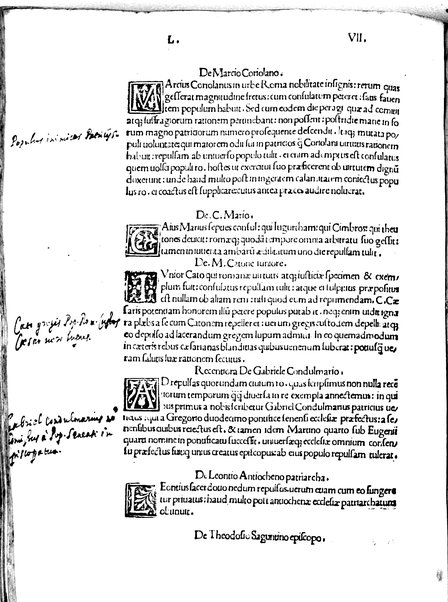 L. VII.
De Marcio Coriolano.
MArcius Coriolanus in urbe Roma nobilitate insignis: rerum quas
gesserat magnitudine fretus: cum consulatum peteret: satis fauen
tem populum habuit. Sed cum eodem die peragi quæ ad comitiū
atq; suffragiorum rationem pertinebant: non possent: postridie mane in fo
rum magno patriciorum numero prosequente descendit. Itaq; mutata po
puli uoluntate: qui maiorem odii sui in patricios q̄ Coriolani uirtutis rationem
habuit: repulsam ab uniuerso populo tulit. ei cum ademptus est consulatus
quem uolsa populi ro. hostes ut exercitui suo præficerent ob uirtutem dignū
duxerunt: unde haud multo post in ingentem calamitatem coniectus popu
lus ro. ei coactus est supplicare: cuius antea præces audire noluerat.
Populus inimicus Patricijs.
De. C. Mario.
CAius Marius septies consul: qui Iugurtham: qui Cimbros: qui theu
tones deuicit: romæq; quodā tempore omnia arbitratu suo gessit:
tamen in iuuenta ambarū ædilitatum uno die repulsam tulit.
De. M. Catone iuniore.
IVnior Cato qui romanæ uirtutis atq; iusticiæ specimen & exem
plum fuit: consulatus repulsam tulit: atque ei Vulpitius præpositus
est nullam ob aliam rem nisi quod eum ad reprimendam. C. Cæ
saris potentiam honorem illū petere populus putabat. neq; enim uidit igna
ra plæbs a se cum Catonem repelleret: uerum gregis custodem depelli. atq;
eo depulso ad lacerandum gregem lupum admitti. In eo quemadmodum
in cæteris rebus cæsarianas blanditias quibus uenenum suberat: potiusq̄ ue
ram salutis suæ rationem secutus.
Cato gregis Pop. Rom. custos
Cæsar uero lupus.
Recentiora De Gabriele Condulmario.
AD repulsas quorundam ciuium ro. quas scripsimus non nulla recē
tiorum temporum q̄q̄ diuersa in re exempla annectemus: in qui
bus primus a nobis scribetur Gabriel Condulmarius patricius ue
netus: qui a Gregorio duodecimo pontifice senensi ecclesiæ præfectus: a se
nensibus quibus reiectus est, & tamen idem Martino quarto sub Eugenii
quarti nomine in pontificatu successit. uniuersæq; ecclesiæ omnium consen
su præfectus suisq; ursus creatus episcopus ab eius populo repulsam tulerat.
Gabriel Condulmarius
à Pop. Senensi in
episcopatu.
De Leontio Antiocheno patriarcha.
LEontius sacerdotio nedum repulsus: uerum etiam cum eo fungere
tur priuatus: haud multo post antiochenæ ecclesiæ patriarchatum
obtinuit.
De Theodosio Saguntino episcopo.